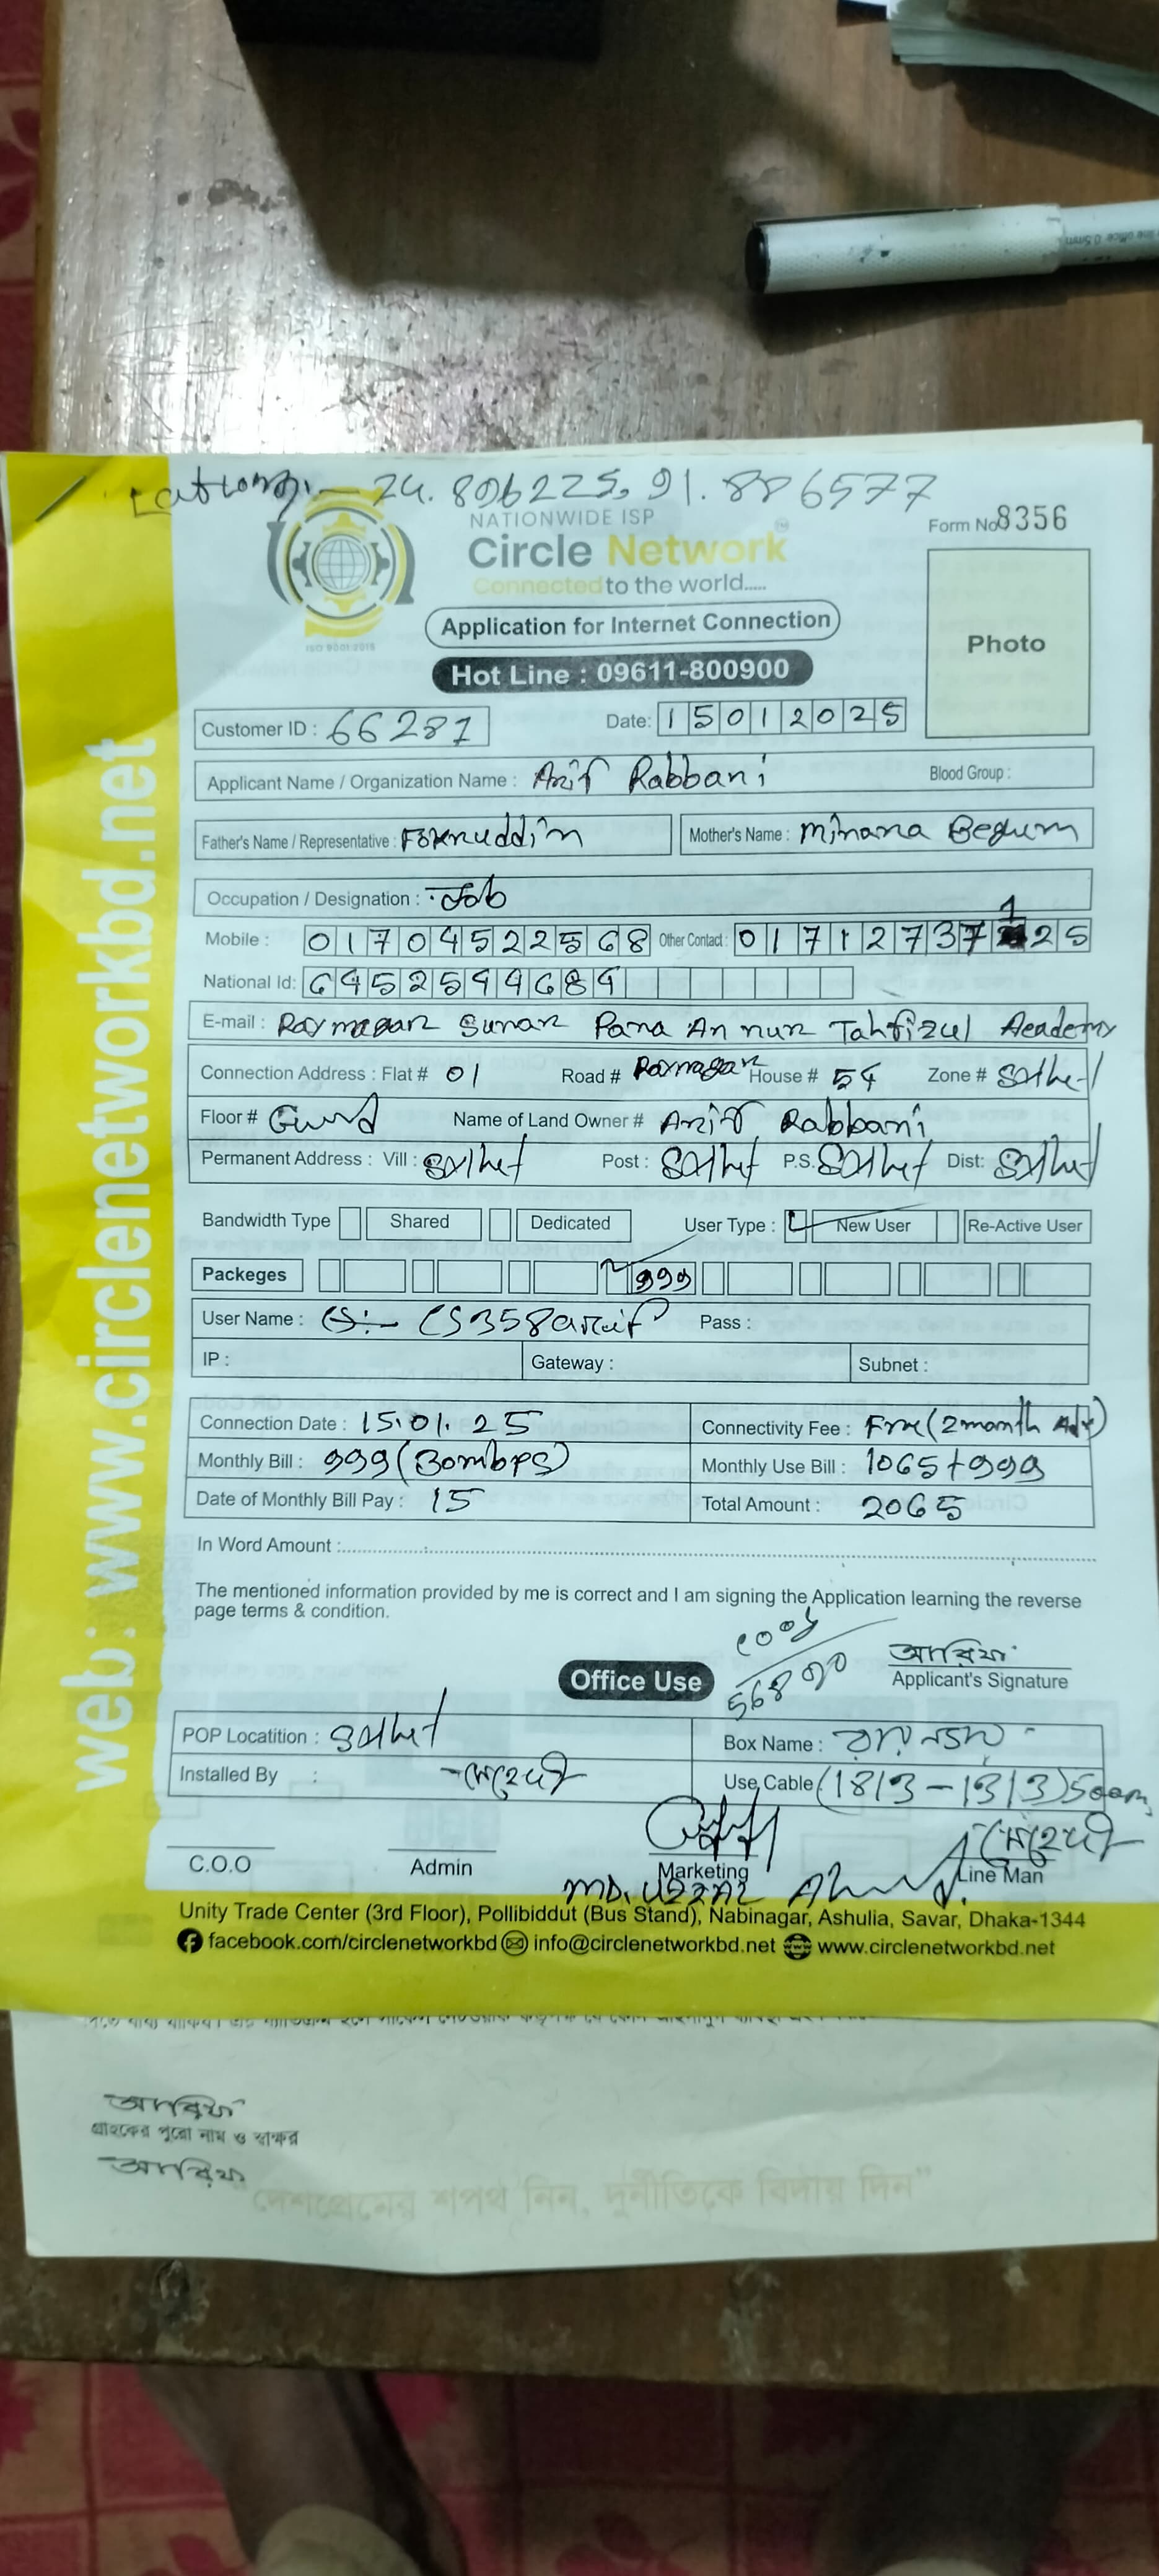 Location:- 24.896225, 91.886577
NATIONWIDE ISP
Circle Network
Connected to the world.....
ISO 9001:2015
Form No 8356
Photo
Application for Internet Connection
Hot Line : 09611-800900
Customer ID : 66281 Date: 15012025
Applicant Name / Organization Name : Arif Rabbani Blood Group :
Father's Name / Representative : Mother's Name : Minara Begum
Occupation / Designation : Job
Mobile : 01704522568 Other Contact : 01712737125
National Id:
E-mail : Raynagar Sunar Para An nur Tahfizul Academy
Connection Address : Flat # 01 Road # Raynagar House # 54 Zone # Sylhet
Floor # Name of Land Owner # Arif Rabbani
Permanent Address : Vill : Sylhet Post : Sylhet P.S. Sylhet Dist: Sylhet
Bandwidth Type Shared Dedicated User Type : New User Re-Active User
Packeges 999
User Name : CS358arif Pass :
IP : Gateway : Subnet :
Connection Date : 15.01.25 Connectivity Fee : Free (2month Adv)
Monthly Bill : 999 (30mbps) Monthly Use Bill : 1065+999
Date of Monthly Bill Pay : 15 Total Amount : 2065
In Word Amount :
The mentioned information provided by me is correct and I am signing the Application learning the reverse
page terms & condition.
আরিফ
Office Use Applicant's Signature
POP Locatition : Sylhet Box Name : রায়নগর
Installed By : মেহেদী Use Cable (1813-1313) 500m
মেহেদী
C.O.O Admin Marketing Line Man
Unity Trade Center (3rd Floor), Pollibiddut (Bus Stand), Nabinagar, Ashulia, Savar, Dhaka-1344
facebook.com/circlenetworkbd info@circlenetworkbd.net www.circlenetworkbd.net
web: www.circlenetworkbd.net
আরিফ
গ্রাহকের পুরো নাম ও স্বাক্ষর
আরিফ
"দেশপ্রেমের শপথ নিন, দুর্নীতিকে বিদায় দিন"